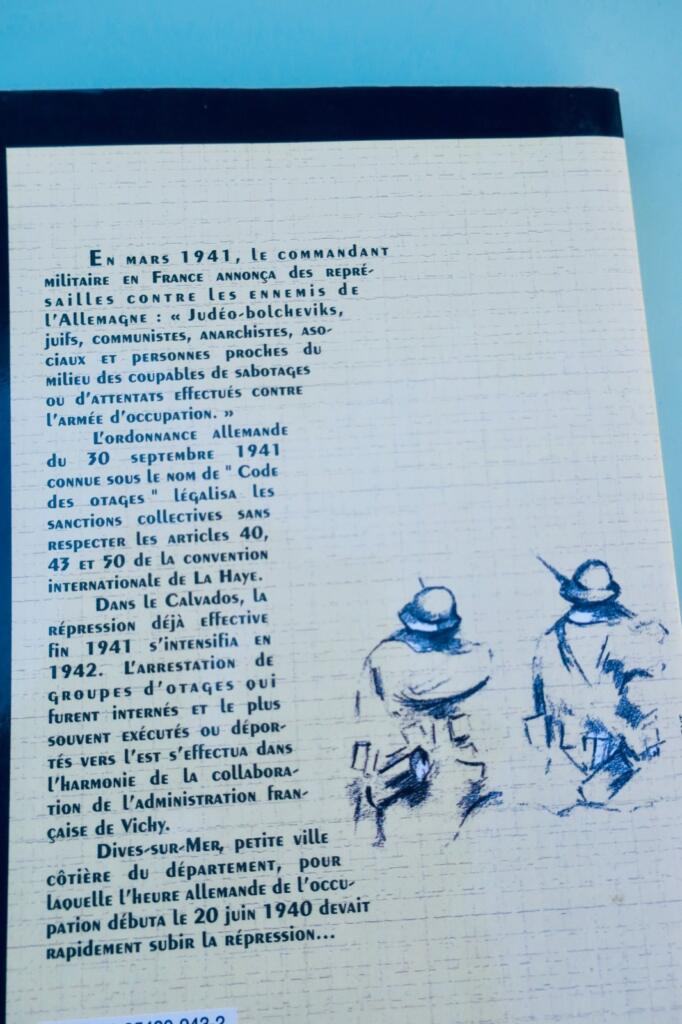 En mars 1941, le commandant
militaire en France annonça des repré-
sailles contre les ennemis de
l'Allemagne : « Judéo-bolcheviks,
juifs, communistes, anarchistes, aso-
ciaux et personnes proches du
milieu des coupables de sabotages
ou d'attentats effectués contre
l'armée d'occupation. »
L'ordonnance allemande
du 30 septembre 1941
connue sous le nom de " Code
des otages " légalisa les
sanctions collectives sans
respecter les articles 40,
43 et 50 de la convention
internationale de La Haye.
Dans le Calvados, la
répression déjà effective
fin 1941 s'intensifia en
1942. L'arrestation de
groupes d'otages qui
furent internés et le plus
souvent exécutés ou dépor-
tés vers l'est s'effectua dans
l'harmonie de la collabora-
tion de l'administration fran-
çaise de Vichy.
Dives-sur-Mer, petite ville
côtière du département, pour
laquelle l'heure allemande de l'occu-
pation débuta le 20 juin 1940 devait
rapidement subir la répression...